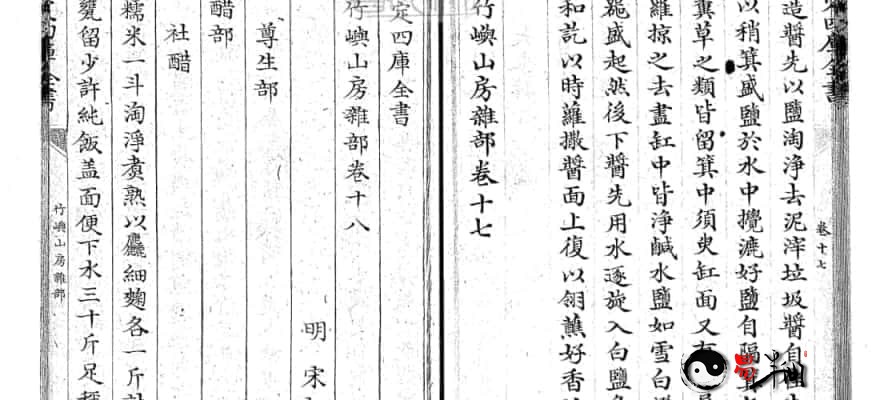 造醬先以鹽淘净去泥滓垃圾醬自
以稍箕盛鹽於水中攪漉好鹽自隔箕
糞草之類皆留箕中須臾缸面又有
羅掠之去盡缸中皆浄鹹水鹽如雪白
罷盛起然後下醬先用水逐旋入白鹽
和訖以時蘿撒醬面上復以翎蘸好香
竹嶼山房雜部卷十七
卷十七
定四庫全書
竹嶼山房雜部卷十八
明 宋
尊生部
醋部
社醋
糯米一斗淘淨煮熟以麤細麴各一斤
甕留少許純飯盖面便下水三十斤足
竹嶼山房雜部
庫全書